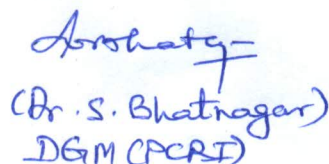 (Dr. S. Bhatnagar)
DGM (PCRI)